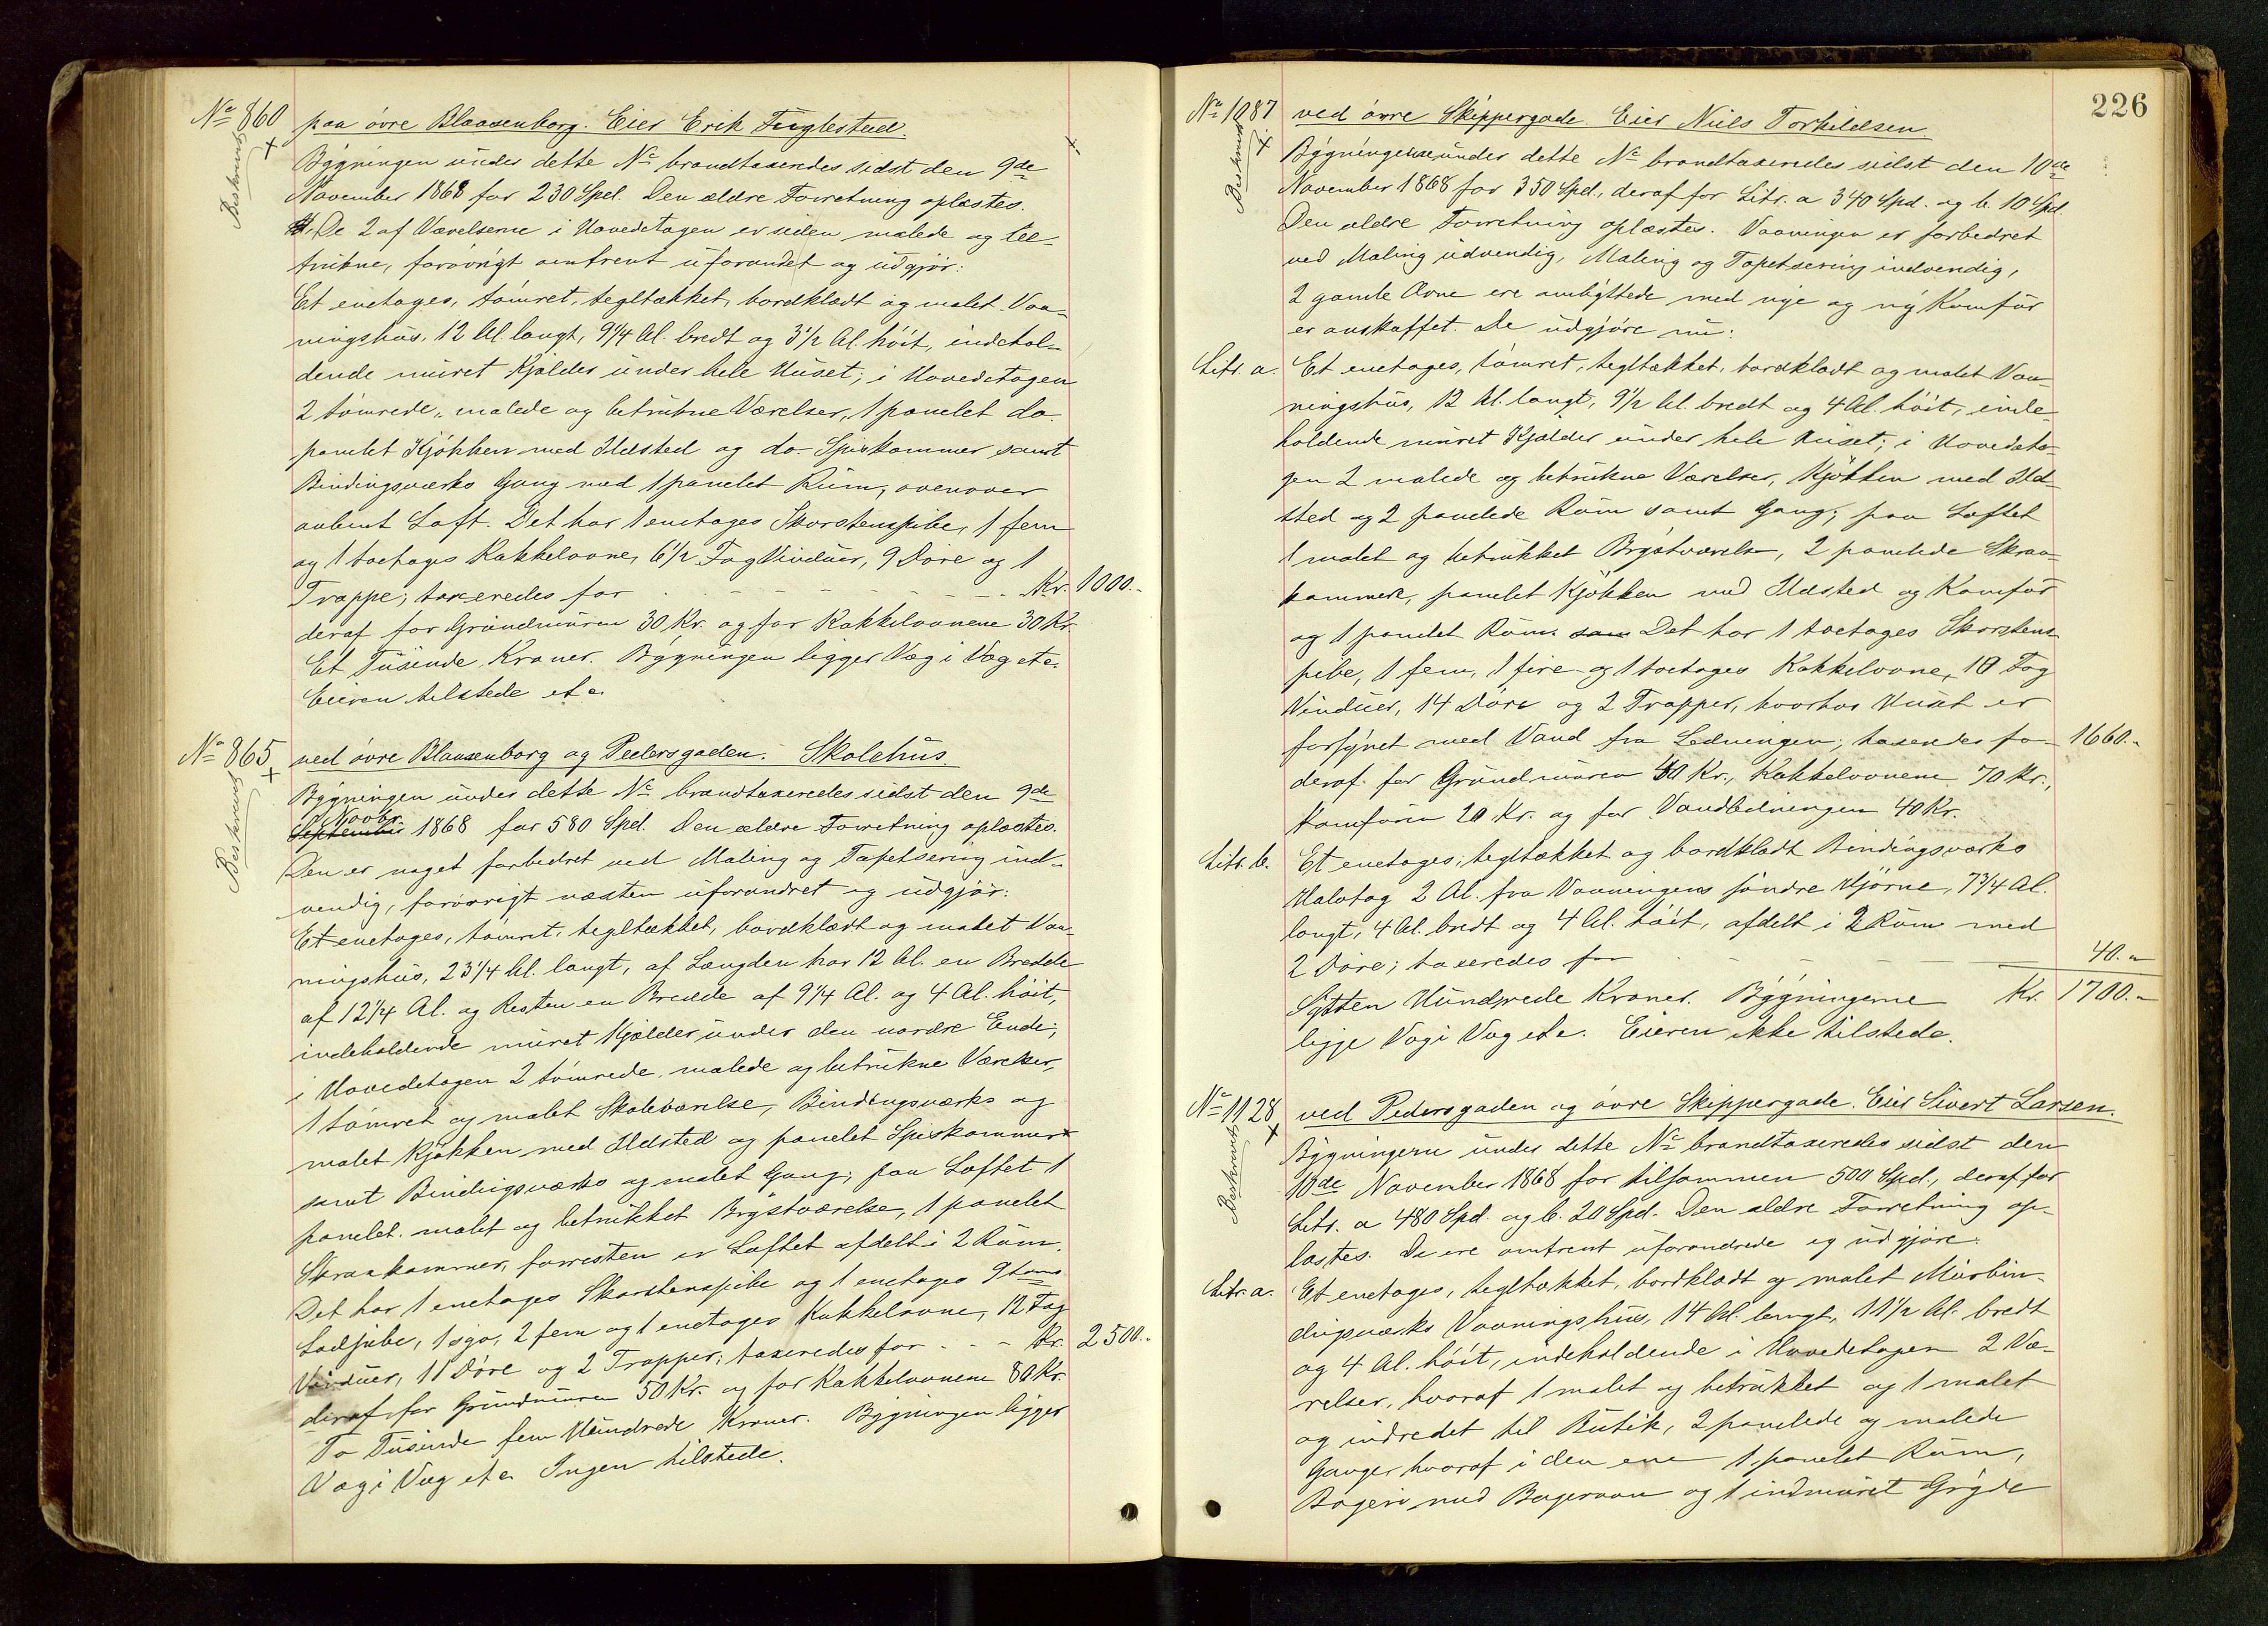 No 860 paa øvre Blaasenborg. Eier Erik Fuglestad.
Beskreven
Bygningen under dette No brandtaxeredes sidst den 9de
November 1868 for 230 Spd. Den ældre Forretning oplæstes.
De 2 af Værelserne i Hovedetagen er siden malede og be-
trukne, forøvrigt omtrent uforandet og udgjør:
Et enetages, tømret, tegltækket, bordklædt og malet Vaa-
ningshus, 12 Al. langt, 9 1/4 Al. bredt og 3 1/2 Al. høit, indehol-
dende muret Kjælder under hele Huset; i Hovedetagen
2 tømrede, malede og betrukne Værelser, 1 panelet do.
panelet Kjøkken med Ildsted og do. Spiskammer samt
Bindingsværks Gang med 1 panelet Rum, ovenover
aabent Loft. Det har 1 enetages Skorstenspibe, 1 fem
og 1 toetages Kakkelovne, 6 1/2 Fag Vinduer, 9 Døre og 1
Trappe; taxeredes for - - - Kr. 1000.-
deraf for Grundmuren 30 Kr. og for Kakkelovnene 30 Kr.
Et Tusinde Kroner. Bygningen ligger Væg i Væg etc.
Eieren tilstede etc.
No 865 ved øvre Blaasenborg og Pedersgaden. Skolehus.
Beskreven
Bygningen under dette No brandtaxeredes sidst den 9de
Novbr.
September 1868 for 580 Spd. Den ældre Forretning oplæstes.
Den er noget forbedret ved Maling og Tapetsering ind-
vendig, forøvrigt næsten uforandret og udgjør:
Et enetages, tømret, tegltækket, bordklædt og malet Vaa-
ningshus, 23 1/4 Al. langt, af Længden har 12 Al. en Bredde
af 12 1/4 Al. og Resten en Bredde af 9 1/4 Al. og 4 Al. høit,
indeholdende muret Kjælder under den nordre Ende;
i Hovedetagen 2 tømrede, malede og betrukne Værelser,
1 tømret og malet Skoleværelse, Bindingsværks og
malet Kjøkken med Ildsted og panelet Spiskammer
samt Bindingsværks og malet Gang; paa Loftet 1
panelet, malet og betrukket Brystværelse, 1 panelet
Skraakammer, forresten er Loftet afdelt i 2 Rum.
Det har 1 enetages Skorstenspibe og 1 enetages 9 toms
Lodpibe, 1 syv, 2 fem og 1 enetages Kakkelovne, 12 Fag
Vinduer, 11 Døre og 2 Trapper; taxeredes for - - Kr. 2500.-
deraf for Grundmuren 50 Kr. og for Kakkelovnene 80 Kr.
To Tusinde fem Hundrede Kroner. Bygningen ligger
Væg i Væg etc. Ingen tilstede.
226
No 1087 ved øvre Skippergade. Eier Niels Torkildsen
Beskreven
Bygningerne under dette No brandtaxeredes sidst den 10de
November 1868 for 350 Spd., deraf for Litr. a 340 Spd. og b. 10 Spd.
Den ældre Forretning oplæstes. Vaaningen er forbedret
ved Maling udvendig, Maling og Tapetsering indvendig,
2 gamle Ovne ere ombyttede med nye og ny Komfur
er anskaffet. De udgjøre nu:
Litr. a. Et enetages, tømret, tegltækket, bordklædt og malet Vaa-
ningshus, 12 Al. langt, 9 1/2 Al. bredt og 4 Al. høit, inde-
holdende muret Kjælder under hele Huset; i Hovedeta-
gen 2 malede og betrukne Værelser, Kjøkken med Ild-
sted og 2 panelede Rum samt Gang; paa Loftet
1 malet og betrukket Brystværelse, 2 panelede Skraa-
kammere, panelet Kjøkken med Ildsted og Komfur
og 1 panelet Rum. sam Det har 1 toetages Skorstens-
pibe, 1 fem, 1 fire og 1 toetages Kakkelovne, 10 Fag
Vinduer, 14 Døre og 2 Trapper, hvorhos Huset er
forsynet med Vand fra Ledningen; taxeredes for 1660.-
deraf for Grundmuren 40 Kr., Kakkelovnene 70 Kr.,
Komfuren 20 Kr. og for Vandledningen 40 Kr.
Litr. b. Et enetages, tegltækket og bordklædt Bindingsværks
Halvtag 2 Al. fra Vaaningens søndre Hjørne, 7 3/4 Al.
langt, 4 Al. bredt og 4 Al. høit, afdelt i 2 Rum med
2 Døre; taxeredes for - - - 40.-
Sytten Hundrede Kroner. Bygningerne Kr. 1700.-
ligge Væg i Væg etc. Eieren ikke tilstede.
No 1128 ved Pedersgaden og øvre Skippergade. Eier Sivert Larsen.
Beskreven
Bygningerne under dette No brandtaxeredes sidst den
10de November 1868 for tilsammen 500 Spd., deraf for
Litr. a 480 Spd. og b. 20 Spd. Den ældre Forretning op-
læstes. De ere omtrent uforandrede og udgjøre:
Litr. a. Et enetages, tegltækket, bordklædt og malet Murbin-
dingsværks Vaaningshus, 14 Al. langt, 11 1/2 Al. bredt
og 4 Al. høit, indeholdende i Hovedetagen 2 Væ-
relser, hvoraf 1 malet og betrukket og 1 malet
og indredet til Butik, 2 panelede og malede
Gange, hvoraf i den ene 1 panelet Rum,
Bageri med Bagerovn og 1 indmuret Gryde